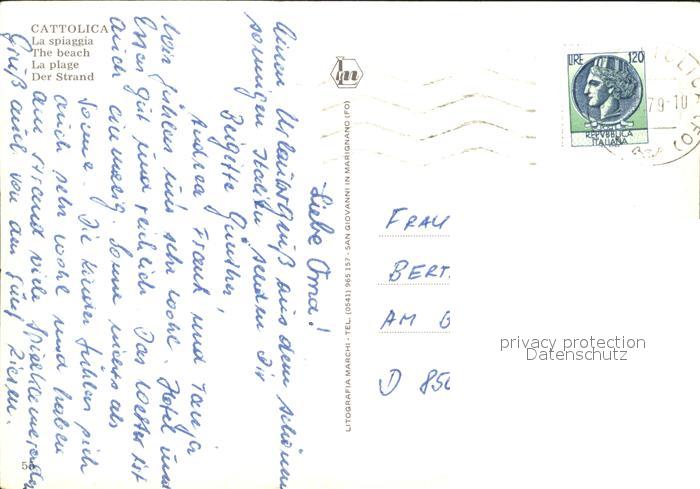 CATTOLICA
La spiaggia
The beach
La plage
Der Strand
Liebe Oma!
Einen Urlaubsgruß aus dem schönen
sonnigen Italien senden Dir
Brigitte Günther,
Andrea Frank und Tanja
Wir fühlen uns sehr wohl. Hotel und
Essen gut und reichlich. Das Wetter ist
auch einmalig. Sonne nichts als
Sonne. Die Kinder fühlen sich
auch sehr wohl und haben
am Strand viele Spielkameraden
Gruß auch von
LITOGRAFIA MARCHI - TEL. (0541) 965 157 - SAN GIOVANNI IN MARIGNANO (FO)
LIRE 120
REPVBBLICA
ITALIANA
79-10
FRAU
BERT.
AM
D 850
privacy protection
Datenschutz